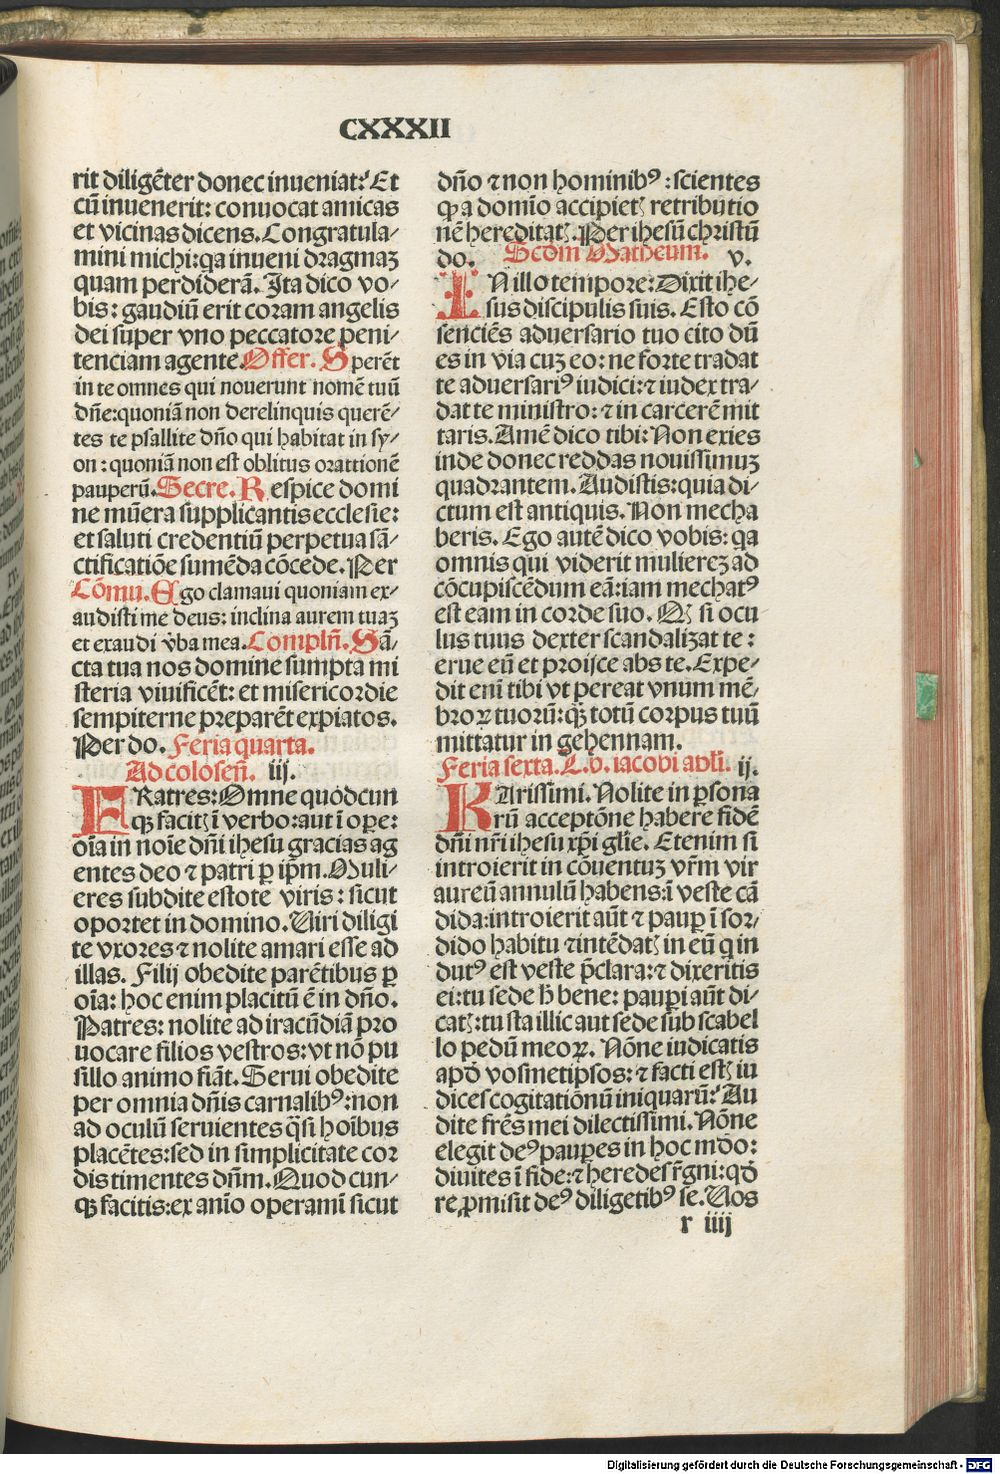 CXXXII
rit diligẽter donec inueniat:' Et
cũ inuenerit: conuocat amicas
et vicinas dicens. Congratula⸗
mini michi: qa inueni dragmaʒ
quam perdiderã. Ita dico vo⸗
bis: gaudiũ erit coram angelis
dei super vno peccatore peni⸗
tenciam agente. Offer. Sperẽt
in te omnes qui nouerunt nomẽ tuũ
dñe: quoniã non derelinquis querẽ⸗
tes te psallite dño qui habitat in sy⸗
on: quoniã non est oblitus orationẽ
pauperũ. Secre. Respice domi
ne mũera supplicantis ecclesie:
et saluti credentiũ perpetua sã⸗
ctificatiõe sumẽda cõcede. Per
Cõmu. Ego clamaui quoniam ex⸗
audisti me deus: inclina aurem tuaʒ
et exaudi v̄ba mea. Complñ. Sã⸗
cta tua nos domine sumpta mi
steria viuificẽt: et misericordie
sempiterne preparẽt expiatos.
Per do. Feria quarta.
Ad coloseñ. iij.
FRatres: Omne quodcun
qꝫ facitꝭ ĩ verbo: aut ĩ oꝑe:
oĩa in noĩe dñi ihesu gracias ag
entes deo ⁊ patri ꝑ ip̃m. Muli⸗
eres subdite estote viris: sicut
oportet in domino. Viri diligi
te vxores ⁊ nolite amari esse ad
illas. Filij obedite parẽtibus ꝑ
oĩa: hoc enim placitũ ẽ in dño.
Patres: nolite ad iracũdiã pro
uocare filios vestros: vt nõ pu
sillo animo fiãt. Serui obedite
per omnia dñis carnalibꝰ: non
ad oculũ seruientes q̃si hoĩbus
placẽtes: sed in simplicitate cor
dis timentes dñm. Quodcun⸗
qꝫ facitis: ex anĩo operami sicut
dño ⁊ non hominibꝰ: scientes
ꝙ a domĩo accipietꝭ retributio
nẽ hereditatꝭ. Per ihesũ christũ
do. Scdm Matheum. v.
IN illo tempore: Dixit ihe⸗
sus discipulis suis. Esto cõ
senciẽs aduersario tuo cito dũ
es in via cuʒ eo: ne forte tradat
te aduersariꝰ iudici: ⁊ iudex tra⸗
dat te ministro: ⁊ in carcerẽ mit
taris. Amẽ dico tibi: Non exies
inde donec reddas nouissimuʒ
quadrantem. Audistis: quia di⸗
ctum est antiquis. Non mecha
beris. Ego autẽ dico vobis: qa
omnis qui viderit muliereʒ ad
cõcupiscẽdum eã: iam mechatꝰ
est eam in corde suo. Qꝫ si ocu
lus tuus dexter scandalizat te:
erue eũ et proijce abs te. Expe⸗
dit enĩ tibi vt pereat vnum mẽ⸗
broꝝ tuorũ: qꝫ totũ corpus tuũ
mittatur in gehennam.
Feria sexta. L. b. iacobi apli. ij.
KArissimi. Nolite in ꝑsona
rũ acceptõne habere fidẽ
dñi nr̃i ihesu xp̃i glĩe. Etenim si
introierit in cõuentuʒ vr̃m vir
aureũ annulũ habens: ĩ veste cã
dida: introierit aũt ⁊ pauꝑ ĩ sor⸗
dido habitu ⁊ intẽdatꝭ in eũ q in
dutꝰ est veste p̃clara: ⁊ dixeritis
ei: tu sede h̄ bene: pauꝑi aũt di⸗
catꝭ: tu sta illic aut sede sub scabel
lo pedũ meoꝝ. Nõne iudicatis
apd̃ vosmetipsos: ⁊ facti estꝭ iu
dices cogitationũ iniquarũ:' Au
dite fr̃es mei dilectissimi. Nõne
elegit deꝰ pauꝑes in hoc mdo:
diuites ĩ fide: ⁊ heredes r̃gni: qd̃
reꝓmisit deꝰ diligẽtibꝰ se. Vos
r iiij
Digitalisierung gefördert durch die Deutsche Forschungsgemeinschaft - DFG